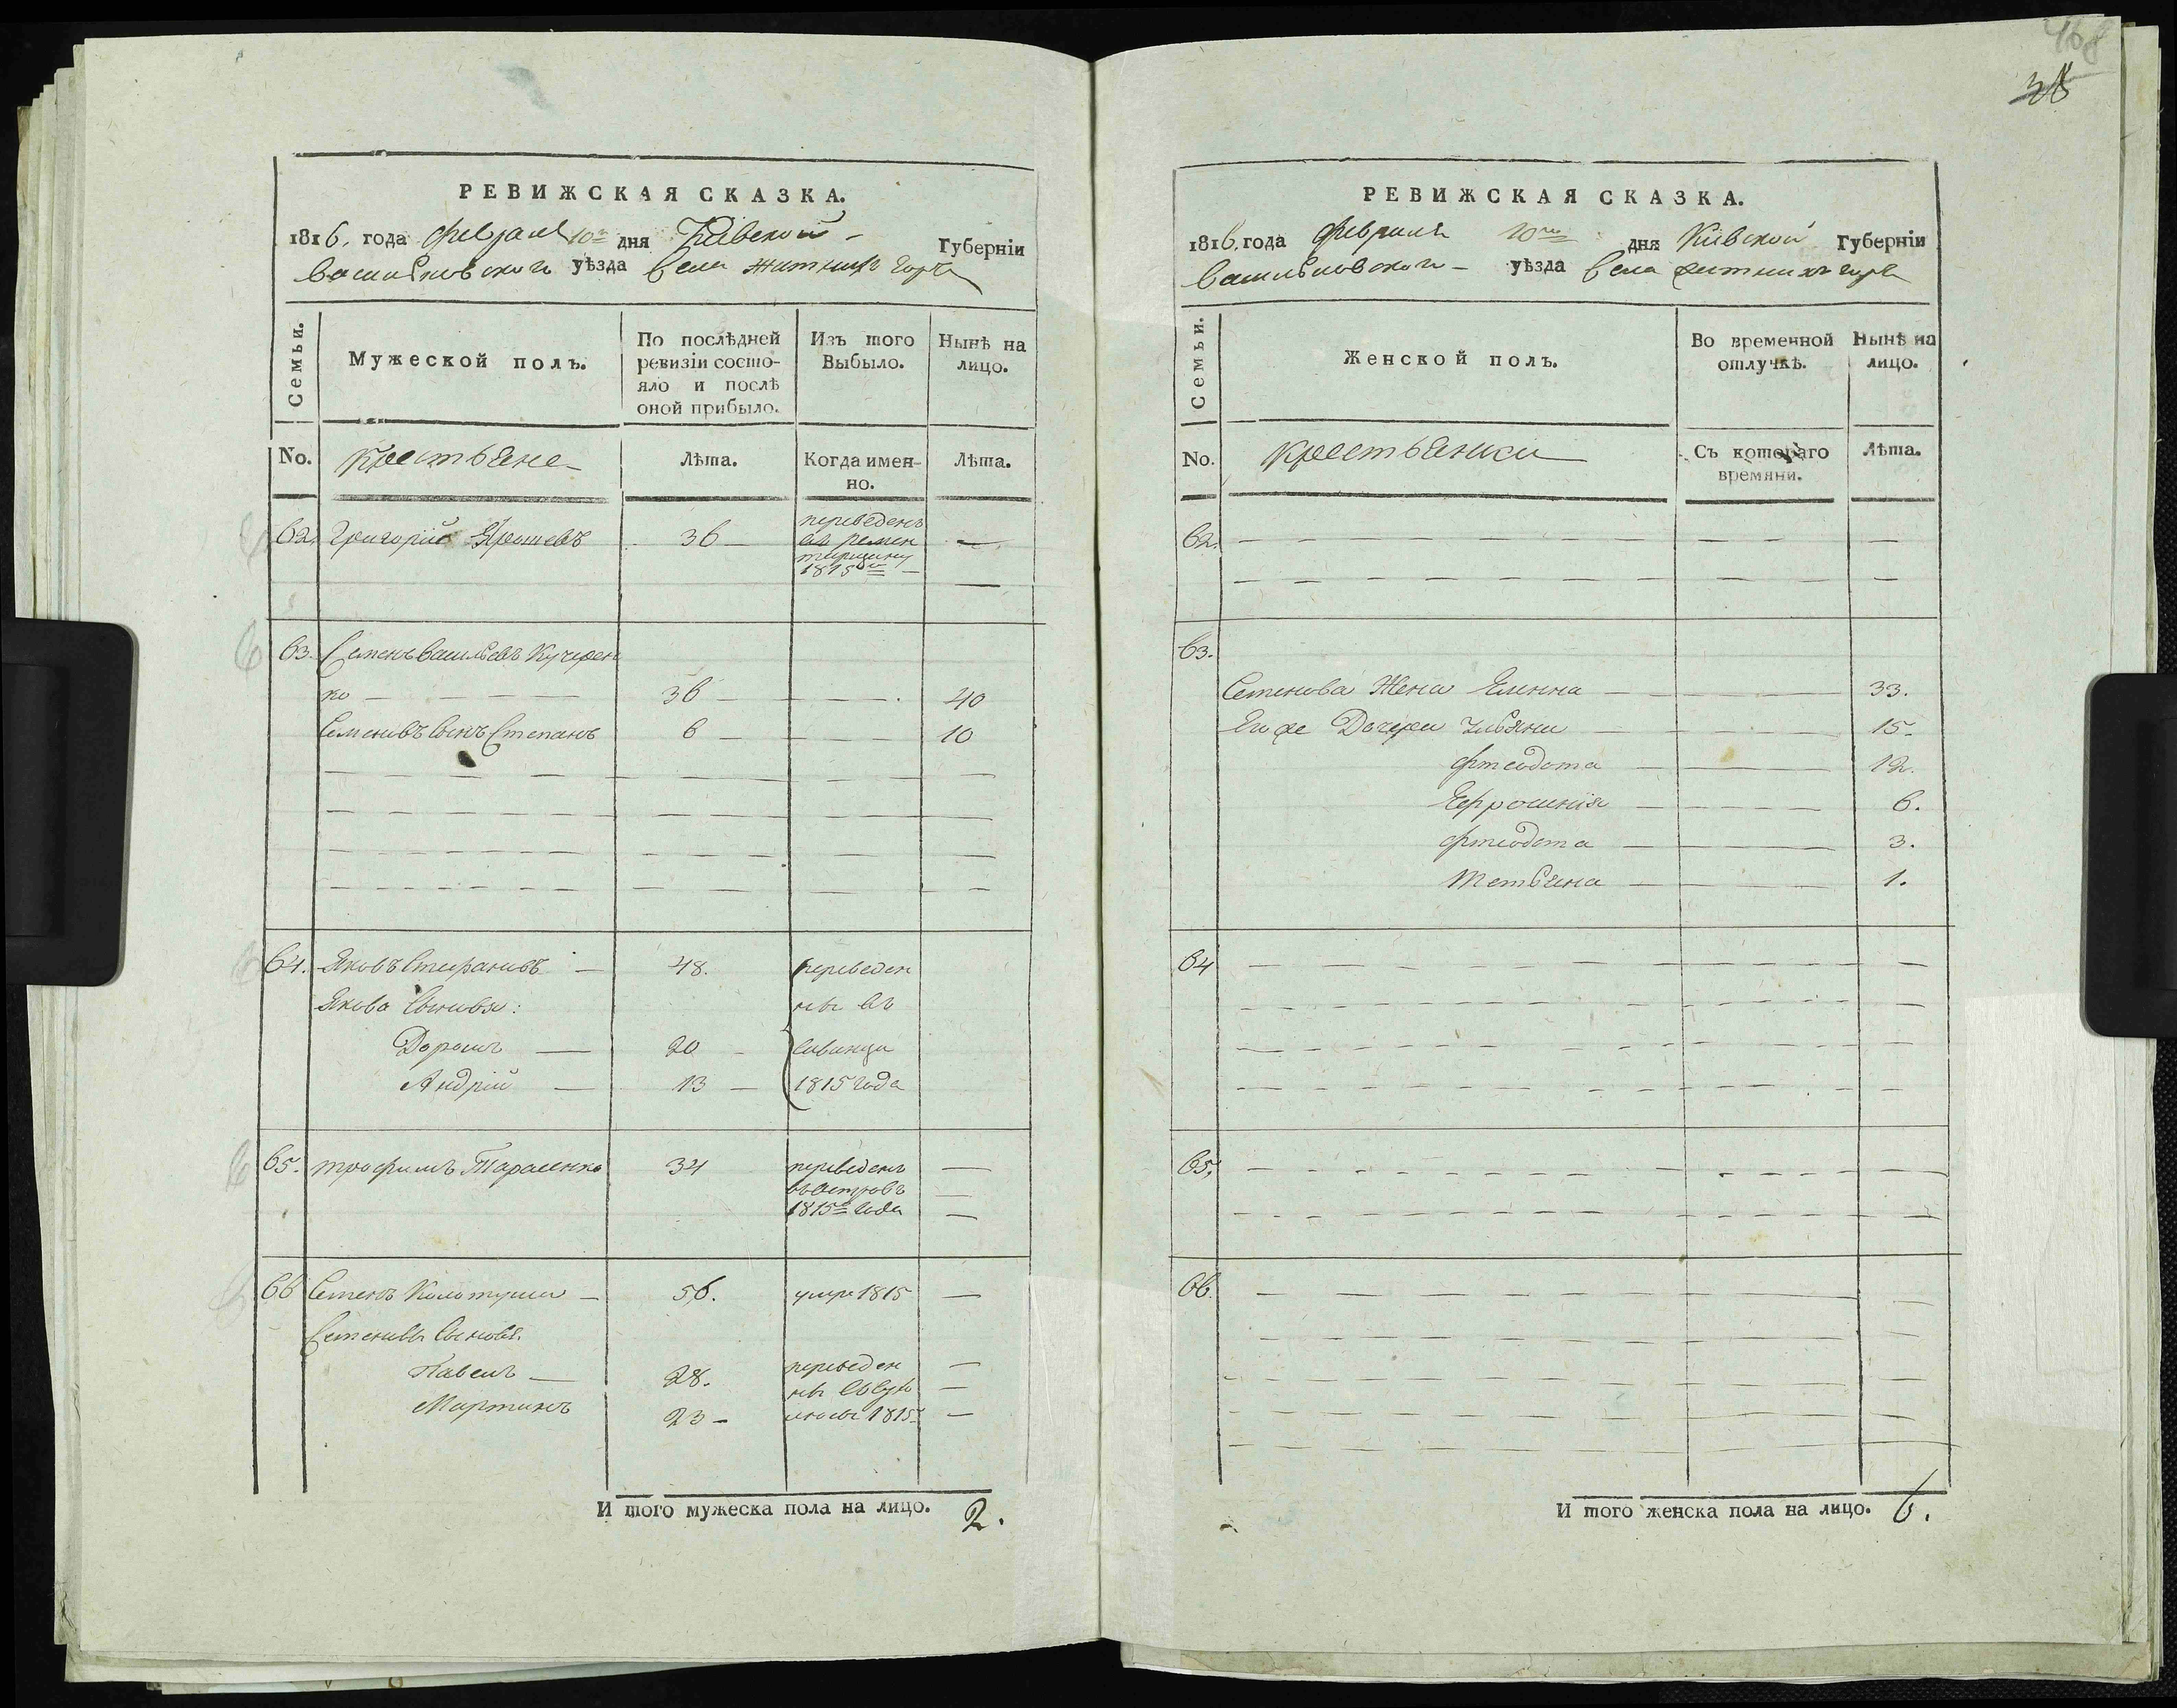 468
38
РЕВИЖСКАЯ СКАЗКА.
1816. года февраля 10го дня Кіевской Губерніи
Васильковского уѣзда Села Житнихъ Горъ
Семьи.
Мужеской полъ.
По послѣдней ревизіи состо-
яло и послѣ
оной прибыло.
Изъ того
Выбыло.
Нынѣ на
лицо.
No.
Крестьяне
Лѣта.
Когда имен-
но.
Лѣта.
62. Григорій 36 — переведенъ
1815го —
63. Семенъ Васильевъ Кучерен
ко — — — — 36 — — — 40
Семеновъ Сынъ Степанъ 6 — — — 10
64. Яковъ Стефановъ — 48. переведен
Якова Сыновья: ны въ
Дорошъ — 20 — Саванци
Андрій — 13 — 1815 года
65. Трофимъ Тарасенко 34 переведенъ —
въ Островъ —
1815го года —
66 Семенъ Колотуша — 56. умре 1815 —
Семеновы Сыновья.
Павелъ — 28. переведен —
ны —
Мартинъ 23 — 1815 —
И того мужеска пола на лицо. 2.
РЕВИЖСКАЯ СКАЗКА.
1816. года февраля 10го дня Кіевской Губерніи
Васильковского — уѣзда Села Житнихъ Горъ
Семьи.
Женской полъ.
Во временной
отлучкѣ.
Нынѣ на
лицо.
No.
Крестьянки
Съ котораго
времяни.
Лѣта.
62.
63.
Семенова Жена Елинна — — — 33.
Ею же Дочери Ульяни — — — 15.
Фтеодота — — 12.
Ефросинія — — 6.
Фтеодота — — 3.
Тетьяна — — 1.
64
65.
66.
И того женска пола на лицо. 6.